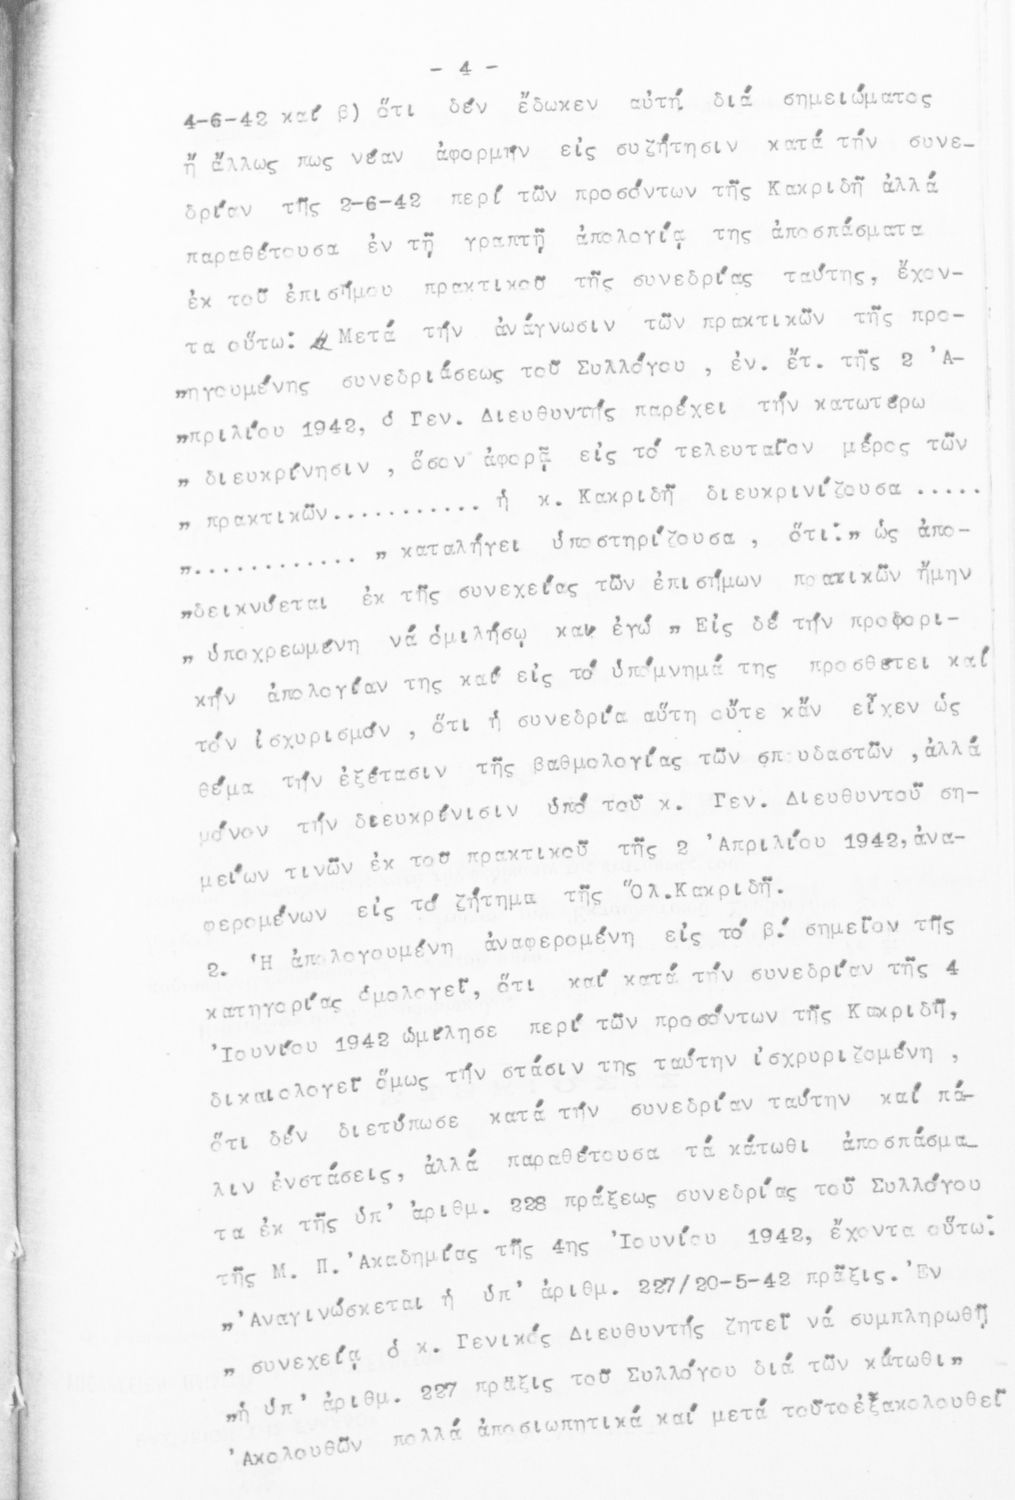 - 4 -
4-6-42 καί β) ὅτι δέν ἔδωκεν αὐτή διά σημειώματος
ἤ ἄλλως πως νέαν ἀφορμήν εἰς συζήτησιν κατά τήν συνε-
δρίαν τῆς 2-6-42 περί τῶν προσόντων τῆς Κακριδῆ ἀλλά
παραθέτουσα ἐν τῇ γραπτῇ ἀπολογίᾳ της ἀποσπάσματα
ἐκ τοῦ ἐπισήμου πρακτικοῦ τῆς συνεδρίας ταύτης, ἔχον-
τα οὕτω: „ Μετά τήν ἀνάγνωσιν τῶν πρακτικῶν τῆς προ-
„ηγουμένης συνεδριάσεως τοῦ Συλλόγου , ἐν. ἔτ. τῆς 2 'Α-
„πριλίου 1942, ὁ Γεν. Διευθυντής παρέχει τήν κατωτέρω
„ διευκρίνησιν , ὅσον ἀφορᾷ εἰς τό τελευταῖον μέρος τῶν
„ πρακτικῶν........... ἡ κ. Κακριδῆ διευκρινίζουσα .....
„............ „ καταλήγει ὑποστηρίζουσα , ὅτι:„ ὡς ἀπο-
„δεικνύεται ἐκ τῆς συνεχείας τῶν ἐπισήμων πρατικῶν ἤμην
„ ὑποχρεωμένη νά ὁμιλήσῳ και ἐγώ „ Εἰς δέ τήν προφορι-
κήν ἀπολογίαν της καί εἰς τό ὑπόμνημά της προσθετει καί
τόν ἰσχυρισμόν , ὅτι ἡ συνεδρία αὕτη οὔτε κἄν εἶχεν ὡς
θέμα τήν ἐξέτασιν τῆς βαθμολογίας τῶν σπουδαστῶν ,ἀλλά
μόνον τήν διευκρίνισιν ὑπό τοῦ κ. Γεν. Διευθυντοῦ ση-
μείων τινῶν ἐκ τοῦ πρακτικοῦ τῆς 2 'Απριλίου 1942, ἀνα-
φερομένων εἰς τό ζήτημα τῆς Ὄλ.Κακριδῆ.
2. Ἡ ἀπολογουμένη ἀναφερομένη εἰς τό β.' σημεῖον τῆς
κατηγορίας ὁμολογεῖ, ὅτι καί κατά τήν συνεδρίαν τῆς 4
'Ιουνίου 1942 ὡμίλησε περί τῶν προσόντων τῆς Κακριδῆ,
δικαιολογεῖ ὅμως τήν στάσιν της ταύτην ἰσχρυριζομένη ,
ὅτι δέν διετύπωσε κατά τήν συνεδρίαν ταύτην καί πά-
λιν ἐνστάσεις, ἀλλά παραθέτουσα τά κάτωθι ἀποσπάσμα_
τα ἐκ τῆς ὑπ' ἀριθμ. 228 πράξεως συνεδρίας τοῦ Συλλόγου
τῆς Μ. Π. 'Ακαδημίας τῆς 4ης 'Ιουνίου 1942, ἔχοντα οὕτω:
„'Αναγινώσκεται ἡ ὑπ' ἀριθμ. 227/20-5-42 πρᾶξις. 'Εν
„ συνεχείᾳ ὁ κ. Γενικός Διευθυντής ζητεῖ νά συμπληρωθῇ
„ἡ ὑπ' ἀριθμ. 227 πρᾶξις τοῦ Συλλόγου διά τῶν κάτωθι„
'Ακολουθῶν πολλά ἀποσιωπητικά καί μετά τοῦτοἐξακολουθεῖ